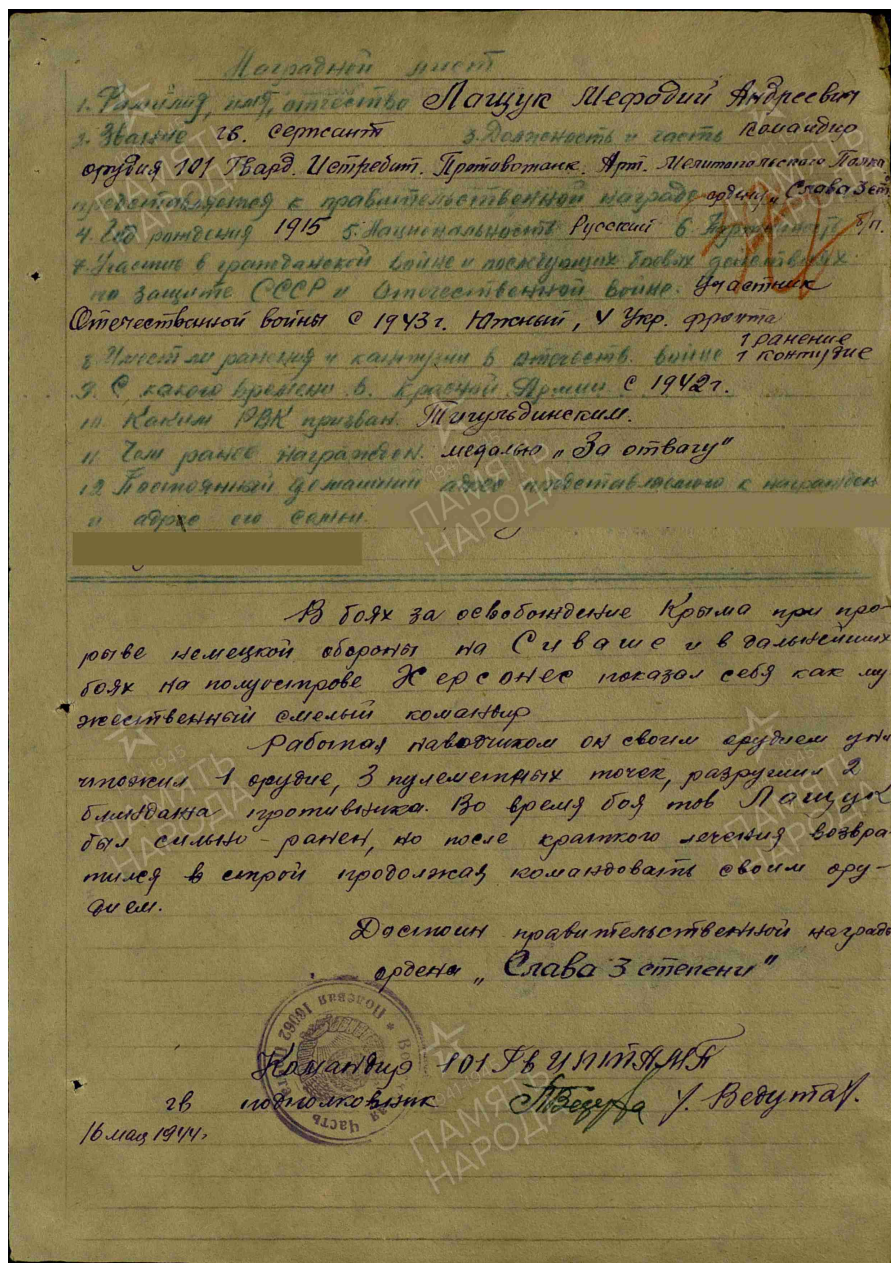 Наградной лист
1. Фамилия, имя, отчество Лащук Мефодий Андреевич
2. Звание гв. сержант 3. Должность и часть Командир
орудия 101 Гвард. Истребит. Противотанк. Арт. Мелитопольского Полка
представляется к правительственной награде ордена „Слава 3 ст
4. Год рождения 1915 5. Национальность Русский 6. Партийность б/п.
7. Участие в гражданской войне и последующих боевых действиях
по защите СССР и Отечественной войне. Участник
Отечественной войны с 1943 г. Южный, 4 Укр. фронта
8. Имеет ли ранения и контузии в отечеств. войне 1 ранение
1 контузие
9. С какого времени в Красной Армии с 1942 г.
10. Каким РВК призван Тигульдинским.
11. Чем ранее награжден. медалью „За отвагу"
12. Постоянный домашний адрес представляемого к награжден
и адрес его семьи.
В боях за освобождение Крыма при про-
рыве немецкой обороны на Сиваше и в дальнейших
боях на полуострове Херсонес показал себя как му
жественный смелый командир
Работая наводчиком он своим орудием уни
чтожил 1 орудие, 3 пулеметных точек, разрушил 2
блиндажа противника. Во время боя тов Лащук
был сильно - ранен, но после краткого лечения возвра
тился в строй продолжая командовать своим ору-
дием.
Достоин правительственной награды
ордена „Слава 3 степени"
Командир 101 Гв ИПТАМП
гв подполковник /. Ведута/.
16 мая 1944 г.
Полевая 16062
часть
ПАМЯТЬ НАРОДА